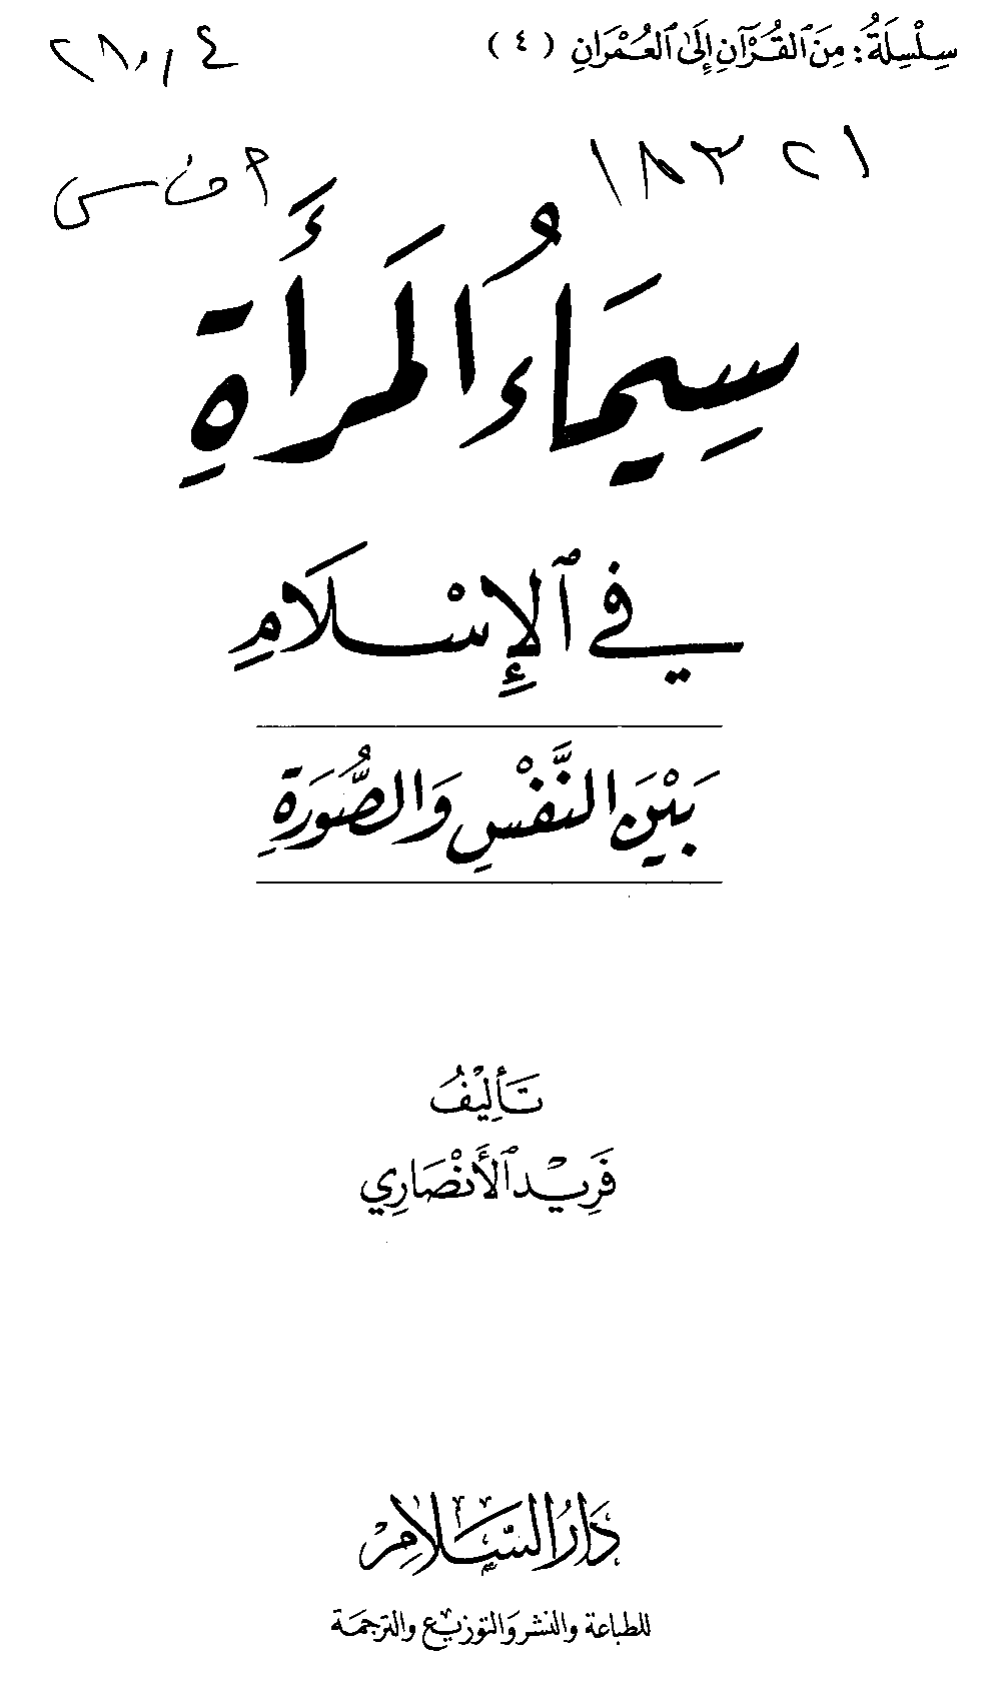 سِلْسِلَةُ: مِنَ ٱلقُرْآنِ إِلَىٰ ٱلعُمْرَانِ ( ٤ )
٢١٨,٤
١٨٣٢١
سِيمَاءُ المَرأَةِ
فِي ٱلإِسْلَامِ
بَيْنَ النَّفْسِ وَالصُّورَةِ
تَأْلِيْفُ
فَرِيْد ٱلأَنْصَارِي
دَارُ السَّلَامِ
للطباعة والنشر والتوزيع والترجمة